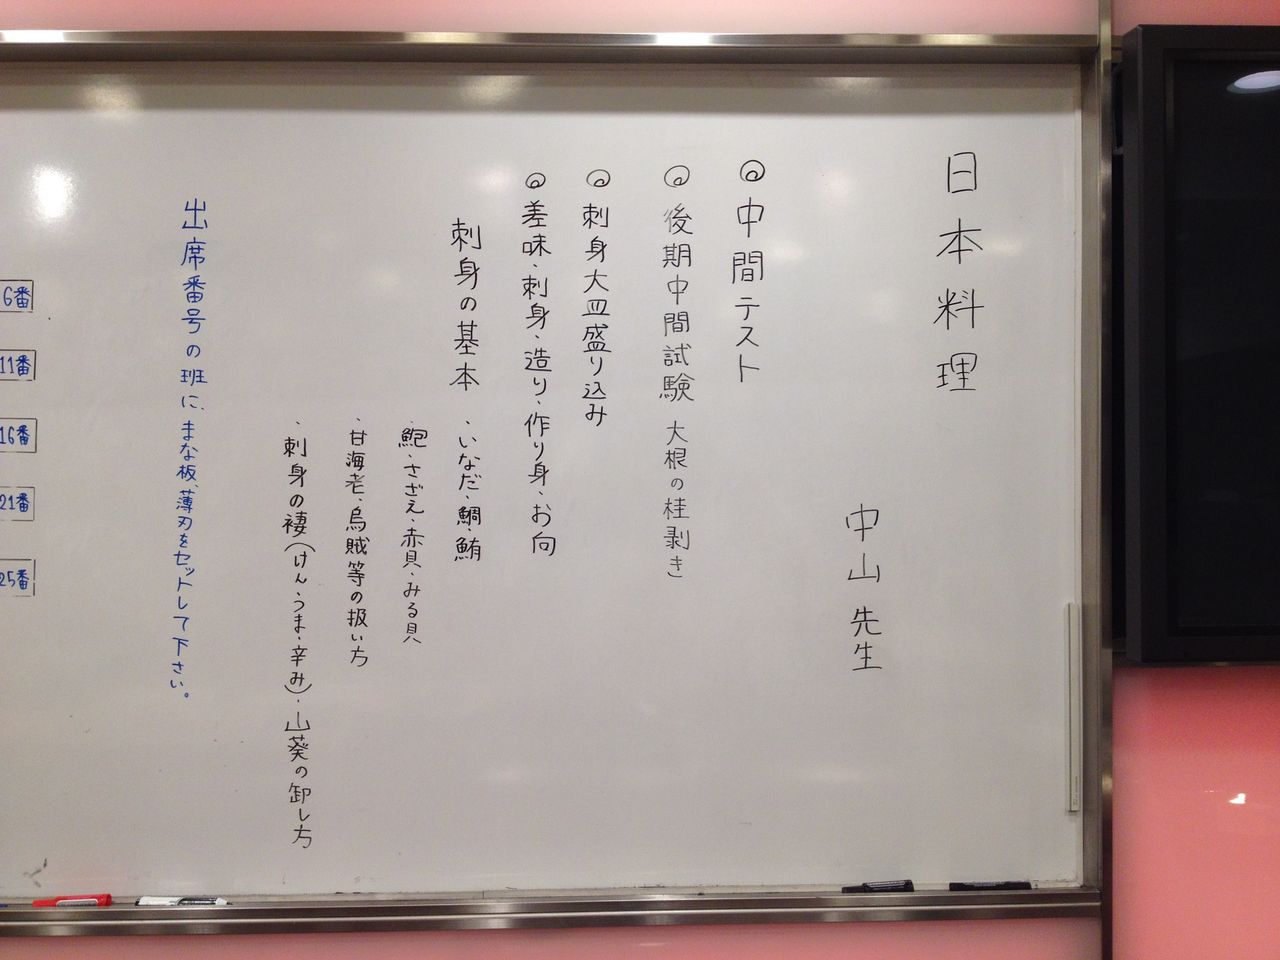 日本料理
中山先生
◎中間テスト
◎後期中間試験 大根の桂剥き
◎刺身大皿盛り込み
◎差味、刺身、造り、作り身、お向
刺身の基本 ・いなだ、鯛、鮪
・鮑、さざえ、赤貝、みる貝
・甘海老、烏賊等の扱い方
・刺身の褄(けん、うま、辛み)、山葵の卸し方
出席番号の班に、まな板、薄刃をセットして下さい。
6番
11番
16番
21番
25番